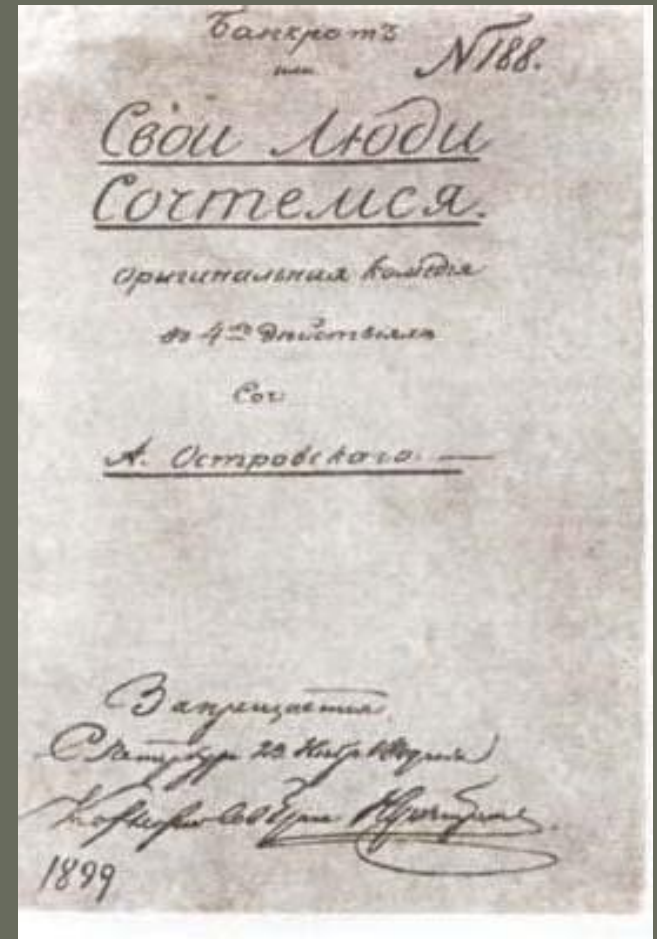 Банкротъ
или № 188.
Свои Люди
Сочтемся.
Оригинальная комедія
въ 4хъ дѣйствіяхъ
Соч.
А. Островскаго.
Запрещается.
С Петербург 23 Нояб
1899